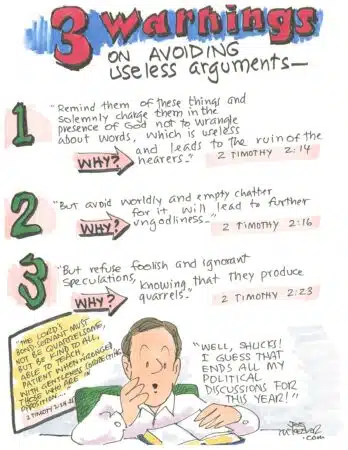 3 Warnings
ON AVOIDING
useless arguments—
1
"Remind them of these things and
solemnly charge them in the
presence of God not to wrangle
about words, which is useless
and leads to the ruin of the
hearers."
WHY?
2 TIMOTHY 2:14
2
"But avoid worldly and empty chatter
for it will lead to further
ungodliness..."
WHY?
2 TIMOTHY 2:16
3
"But refuse foolish and ignorant
speculations, knowing that they produce
quarrels."
WHY?
2 TIMOTHY 2:23
"THE LORD'S
BOND-SERVANT MUST
NOT BE QUARRELSOME,
BUT BE KIND TO ALL,
ABLE TO TEACH,
PATIENT WHEN WRONGED,
WITH GENTLENESS CORRECTING
THOSE WHO ARE IN
OPPOSITION..."
2 TIMOTHY 2:24-25
"WELL, SHUCKS!
I GUESS THAT
ENDS ALL MY
POLITICAL
DISCUSSIONS FOR
THIS YEAR!"
JOE
MCKEEVER
.com